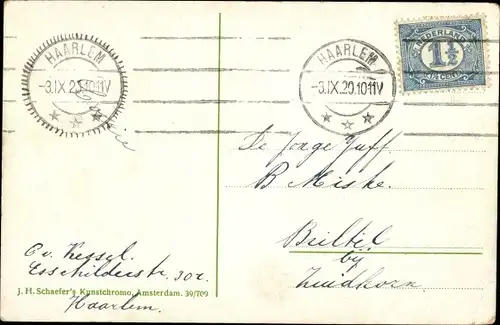 HAARLEM
-3.IX.20.1011V
HAARLEM
-3.IX.20.1011V
NEDERLAND
1½
De Jonge Juff.
B Miske.
Briltil
bij
Zuidhorn.
C v. Kessel.
Esschilderstr. 30r.
J. H. Schaefer's Kunstchromo, Amsterdam. 39/709
Haarlem.